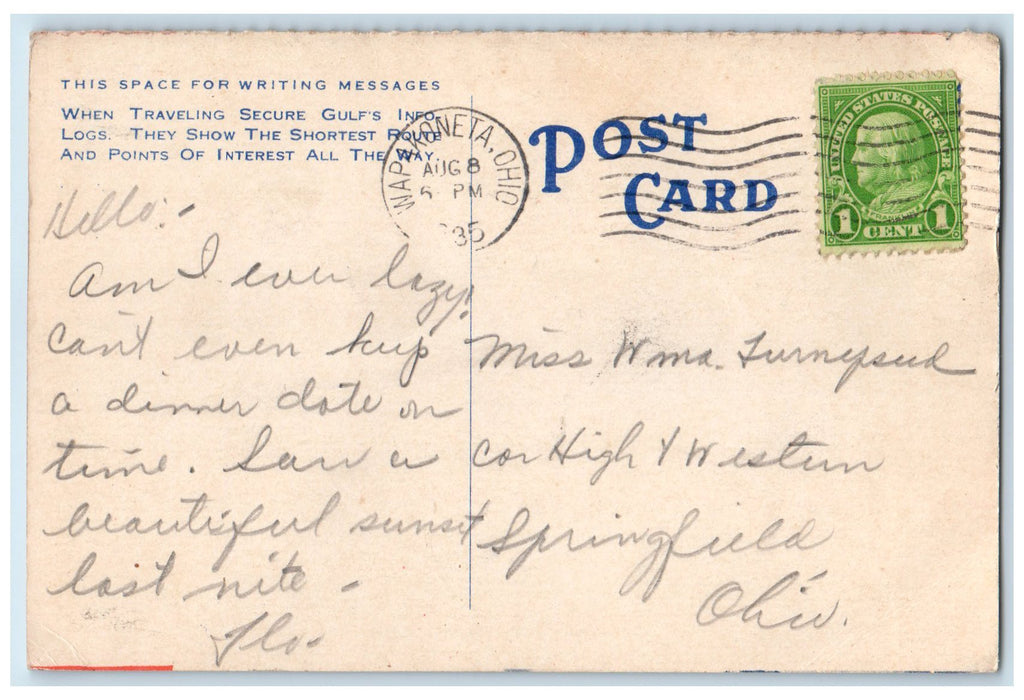 THIS SPACE FOR WRITING MESSAGES
WHEN TRAVELING SECURE GULF'S INFO
LOGS. THEY SHOW THE SHORTEST ROUTE
AND POINTS OF INTEREST ALL THE WAY.
WAPAKONETA, OHIO
AUG 8
PM
35
POST
CARD
UNITED STATES POSTAGE
FRANKLIN
1 CENT 1
Hello:-
Am I ever lazy!
can't even keep
a dinner date on
time. Saw a
beautiful sunset
last nite -
Flo-
Miss Wma.
cor High & Western
Springfield
Ohio.